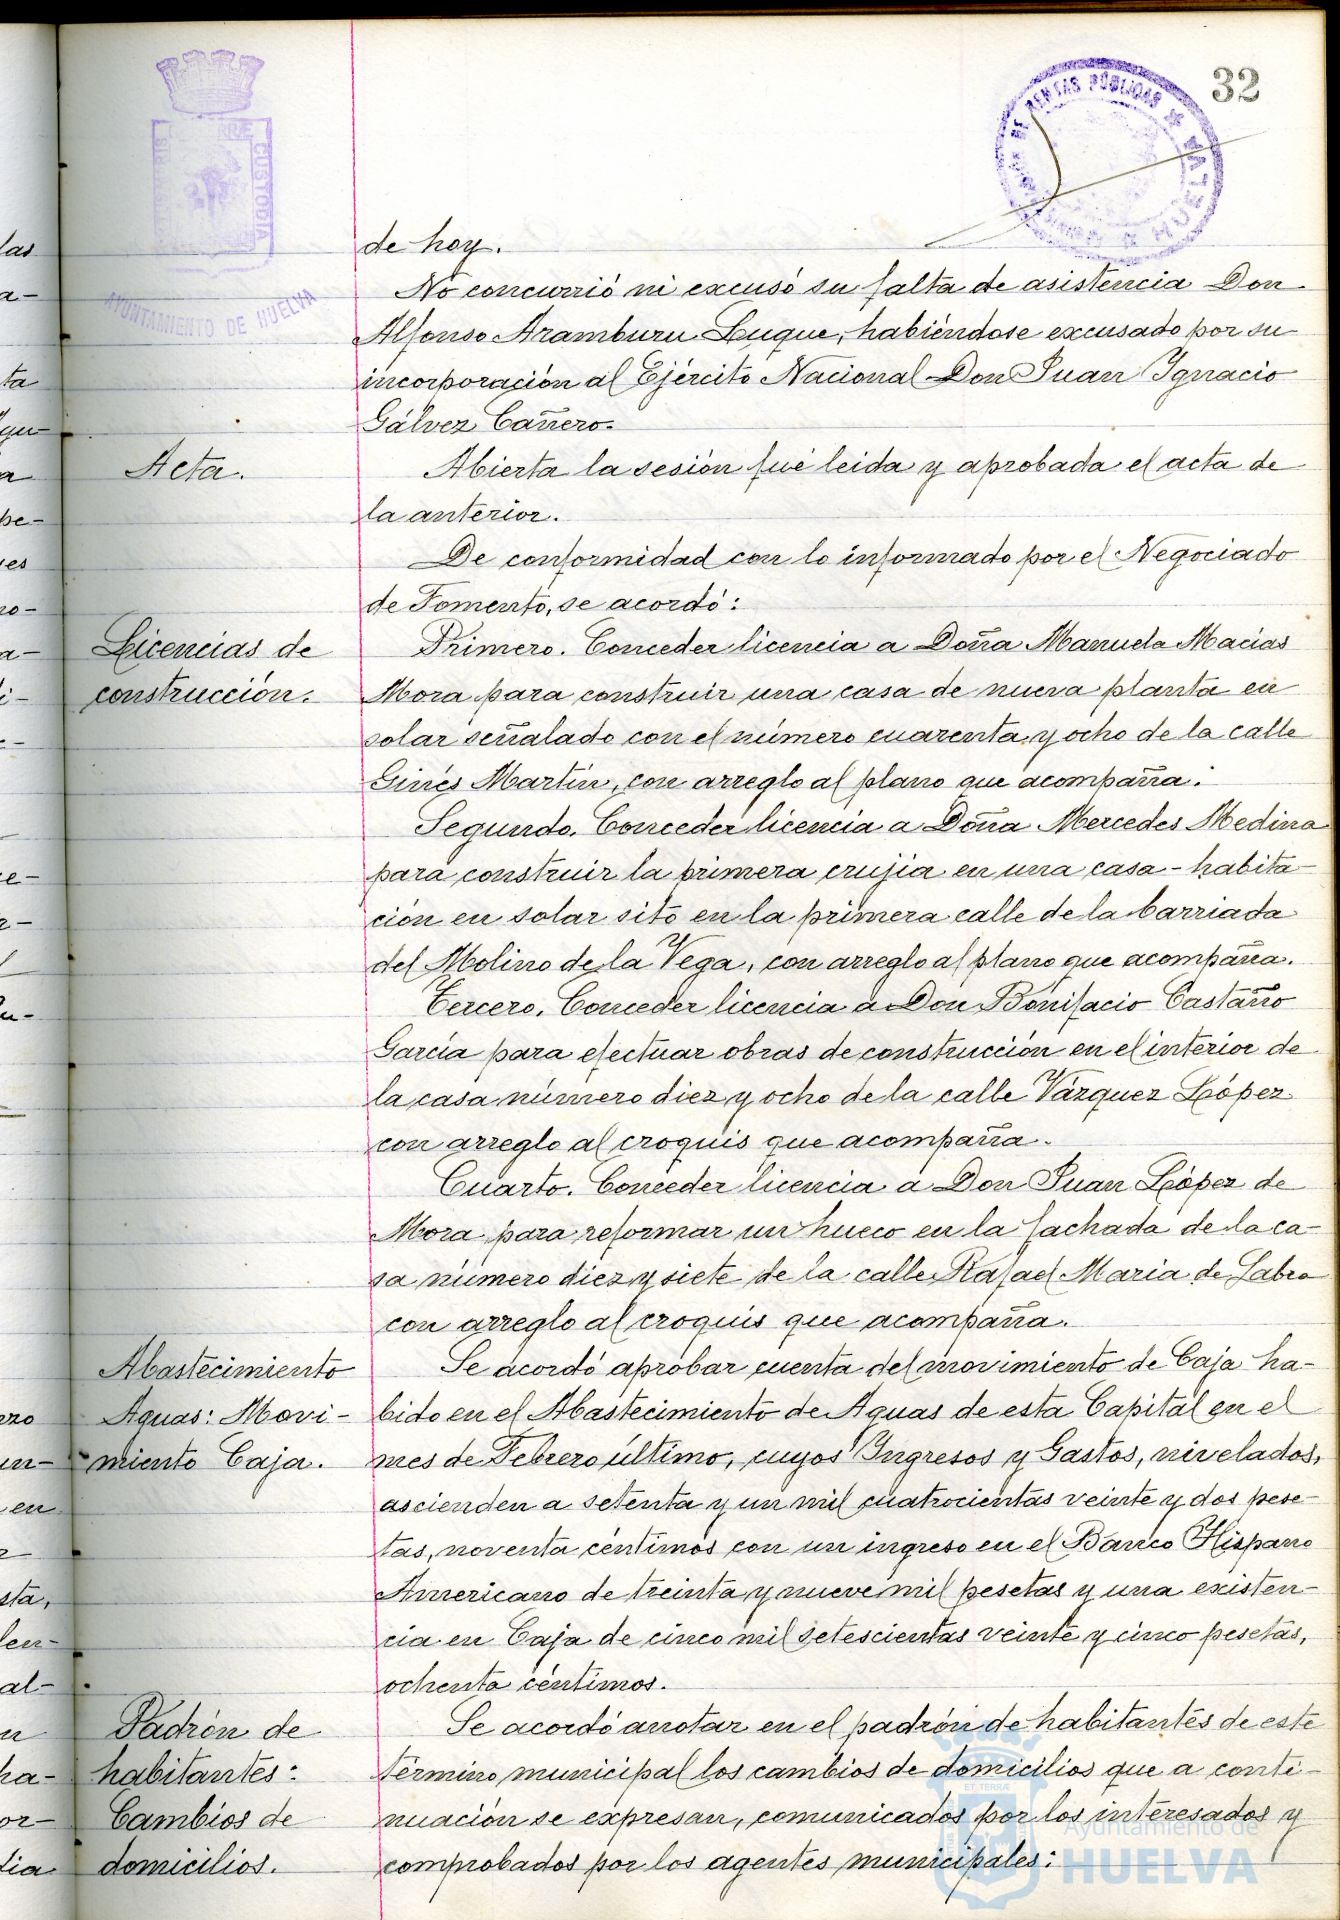 32
AYUNTAMIENTO DE HUELVA
de hoy.
No concurrió ni excusó su falta de asistencia Don
Alfonso Aramburu Luque, habiéndose excusado por su
incorporación al Ejército Nacional Don Juan Ignacio
Gálvez Cañero.
Acta.
Abierta la sesión fué leida y aprobada el acta de
la anterior.
De conformidad con lo informado por el Negociado
de Fomento, se acordó:
Licencias de
construcción.
Primero. Conceder licencia a Doña Manuela Macías
Mora para construir una casa de nueva planta en
solar señalado con el número cuarenta y ocho de la calle
Ginés Martín, con arreglo al plano que acompaña.
Segundo. Conceder licencia a Doña Mercedes Medina
para construir la primera crujia en una casa-habita-
ción en solar sito en la primera calle de la barriada
del Molino de la Vega, con arreglo al plano que acompaña.
Tercero. Conceder licencia a Don Bonifacio Castaño
García para efectuar obras de construcción en el interior de
la casa número diez y ocho de la calle Vázquez López
con arreglo al croquis que acompaña.
Cuarto. Conceder licencia a Don Juan López de
Mora para reformar un hueco en la fachada de la ca-
sa número diez y siete de la calle Rafael Maria de Labra
con arreglo al croquis que acompaña.
Abastecimiento
Aguas: Movi-
miento Caja.
Se acordó aprobar cuenta del movimiento de Caja ha-
bido en el Abastecimiento de Aguas de esta Capital en el
mes de Febrero último, cuyos Ingresos y Gastos, nivelados,
ascienden a setenta y un mil cuatrocientas veinte y dos pese-
tas, noventa céntimos con un ingreso en el Banco Hispano
Americano de treinta y nueve mil pesetas y una existen-
cia en Caja de cinco mil setescientas veinte y cinco pesetas,
ochenta céntimos.
Padrón de
habitantes:
Cambios de
domicilios.
Se acordó anotar en el padrón de habitantes de este
término municipal los cambios de domicilios que a conti-
nuación se expresan, comunicados por los interesados y
comprobados por los agentes municipales:
Ayuntamiento de
HUELVA